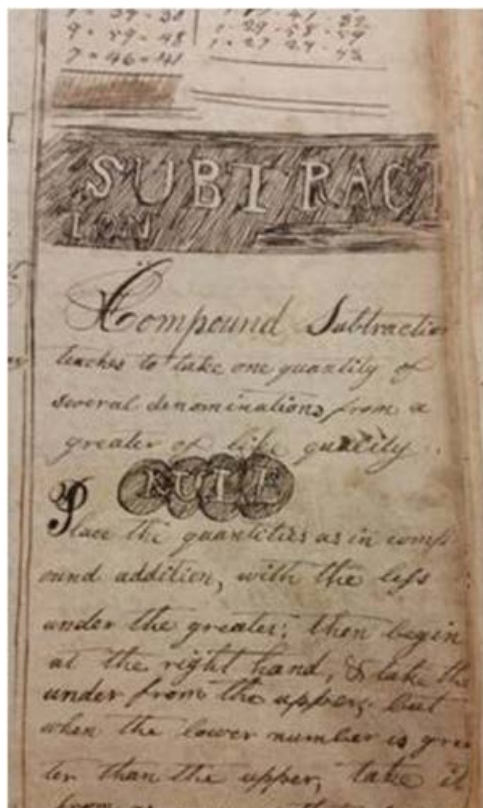 9 = 59 = 48
7 = 46 = 41
SUBTRACT
ION
Compound Subtraction
teaches to take one quantity of
several denominations from a
greater of like quality.
RULE
Place the quantities as in comp
ound addition, with the less
under the greater; then begin
at the right hand, & take the
under from the upper; but
when the lower number is grea
ter than the upper, take it
from